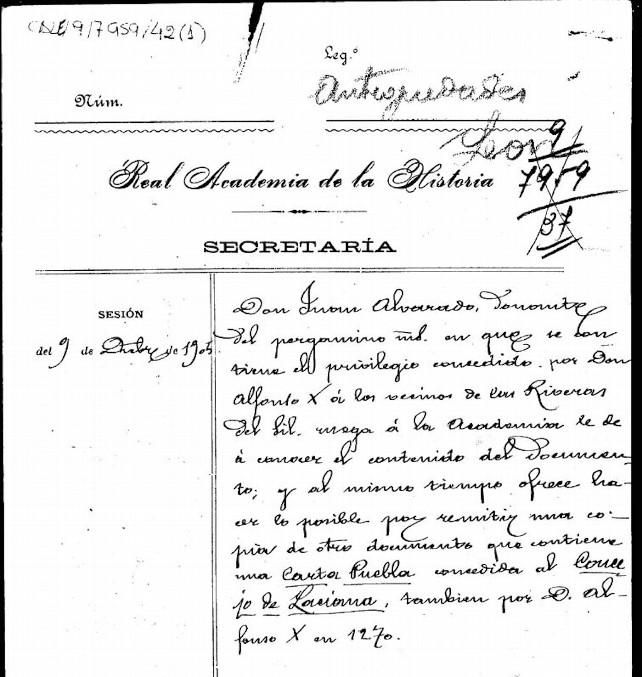 CNE/9/7959/42(1)
Leg.º
Antiguedades
Núm.
Leon
9
7959
37
Real Academia de la Historia
SECRETARÍA
SESIÓN
del 9 de Dbre de 1905
Don Juan Alvarado, donante
del pergamino md. en que se con
tiene el privilegio concedido por Don
Alfonso X á los vecinos de las Riveras
del Sil. ruega á la Academia le de
á conocer el contenido del Documen-
to; y al mismo tiempo ofrece ha-
cer lo posible por remitir una co-
pia de otro documento que contiene
una Carta Puebla concedida al Conce
jo de Laciana, tambien por D. Al-
fonso X en 1270.